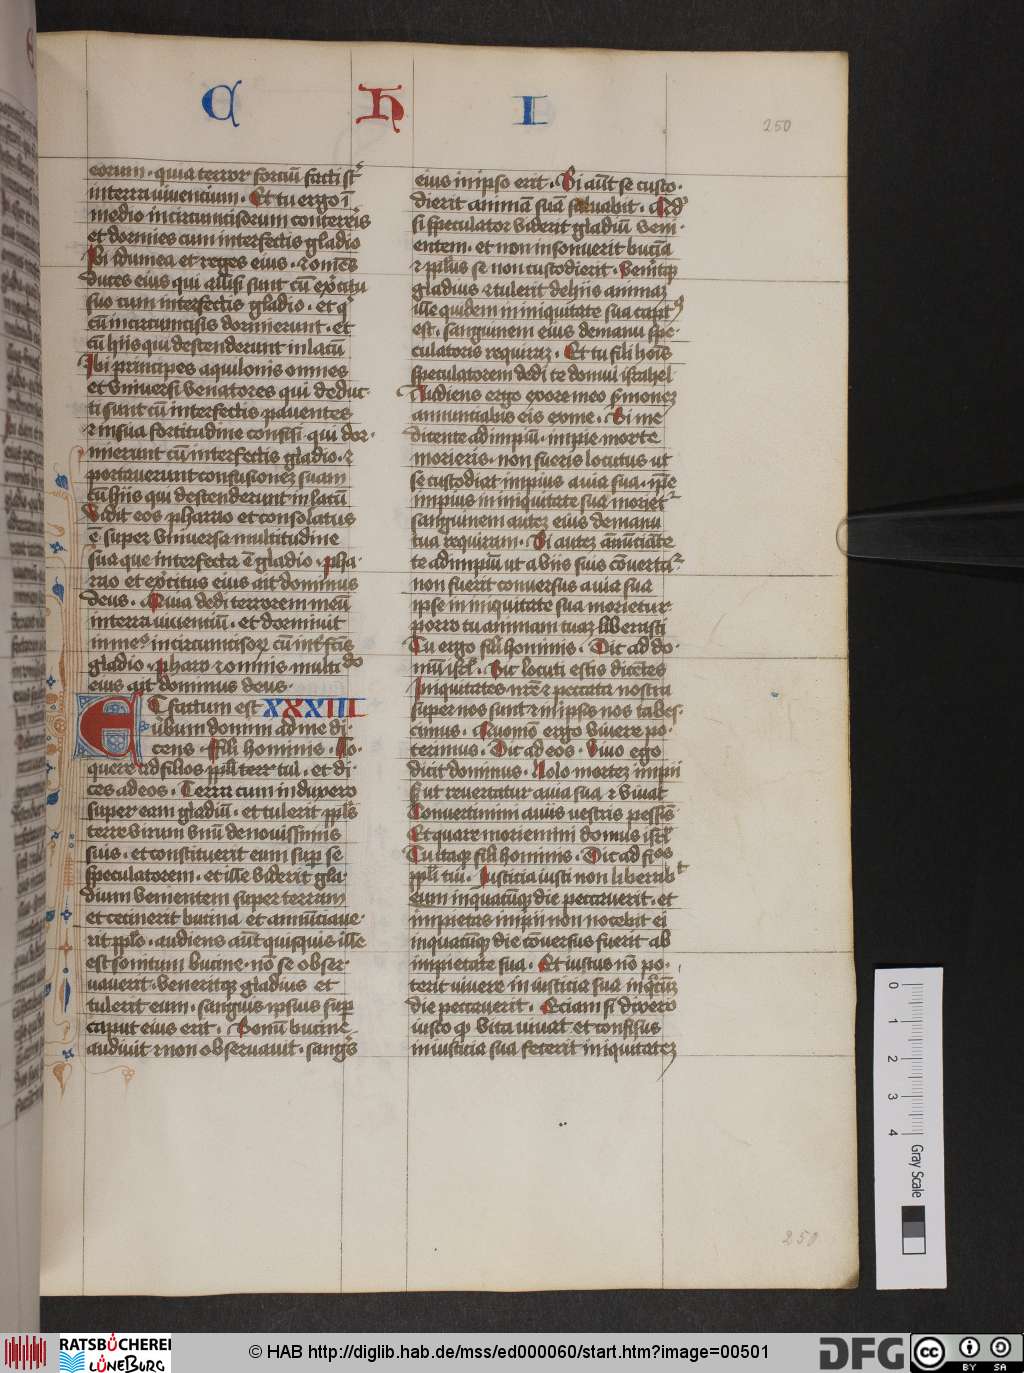 C H I
250
eorum · quia terror fortiū facti st᷑
in terra viventium · Et tu ergo ī
medio incircumcisorum contereris
et dormies cum interfectis gladio
Ibi idumea et reges eius · ⁊ omēs
duces eius qui
suo cum interfectis gladio · et q
cū incircumcisis dormierunt · et
cū hiis qui descenderunt in lacū
Ibi principes aquilonis omnes
et universi venatores qui deduc-
ti sunt cū interfectis paventes
⁊ in sua fortitudine confusi · qui dor-
mierunt cū interfectis gladio · ⁊
portaverunt confusionez suam
cū hiis qui descenderunt in lacū
Vidit eos pharao et consolatus
ē super universa multitudine
sua que interfecta ē gladio · pha-
rao et exercitus eius ait dominus
deus · Quia dedi terrorem meū
in terra viventiū · et dormivit
in medio incircumcisorum cū interfectis
gladio · pharo ⁊ omnis multido
eius ait dominus deus ·
ET factum est XXXIII
verbum domini ad me di-
cens · Fili hominis · lo-
quere ad filios ppl'i · et di-
ces ad eos · Terra cum induxero
super eam gladiū · et tulerit ppl's
terre virum unū de novissimis
suis · et constituerit eum sup se
speculatorem · et ille viderit gla-
dium venientem super terram
et cecinerit bucina et annūciave-
rit pplo · audiens aūt quisquis ille
est sonitum bucine · nō se obser-
vaverit · veneritque gladius et
tulerit eum · sanguis ipsius sup
caput eius erit · Sonū bucine
audivit ⁊ non observavit · sang's
eius in ipso erit · Si aūt se custo-
dierit animā suā salvabit · Qd'
si speculator viderit gladiū veni-
entem · et non insonuerit bucīa
⁊ ppl'us se non custodierit · Venitque
gladius ⁊ tulerit de hiis animaz
ille quidem in iniquitate sua capt9
est · sanguinem eius de manu spe-
culatoris requiraz · Et tu fili hoīs
speculatorem dedi te domui israhel
Audiens ergo ex ore meo sermonez
annunciabis eis ex me · Si me
dicente ad impiū · impie morte
morieris · non fueris locutus ut
se custodiat impius a via sua · ipse
impius in iniquitate sua moriet᷑
sanguinem autez eius de manu
tua requiram · Si autez annūciāte
te ad impiū ut a viis suis cōverta᷑
non fuerit conversus a via sua
ipse in iniquitate sua morietur
porro tu animam tuaz liberasti
Tu ergo fili hominis · Dic ad do-
mū isrl · Sic locuti estis dicētes
Iniquitates nr̄e ⁊ peccata nostra
super nos sunt ⁊ in ipsis nos tabes-
cimus · Quomō ergo vivere po-
terimus · Dic ad eos · Vivo ego
dicit dominus · Nolo mortez impii
s; ut revertatur a via sua ⁊ vivat
Convertimini a viis vestris pessīs
Et quare moriemini domus isrl
Tu itaque fili hominis · Dic ad fios
ppli tui · Iusticia iusti non liberabt
eum in quacūque die peccaverit · et
impietas impii non nocebit ei
in quacūque die cōversus fuerit ab
impietate sua · Et iustus nō po-
terit vivere in iusticia sua in quacūque
die peccaverit · Eciam si dixero
iusto q vita vivat et confisus
in iusticia sua fecerit iniquitatez
250
0 1 2 3 4
Gray Scale
RATSBÜCHEREI
LÜNEBURG
© HAB http://diglib.hab.de/mss/ed000060/start.htm?image=00501
DFG
cc BY SA